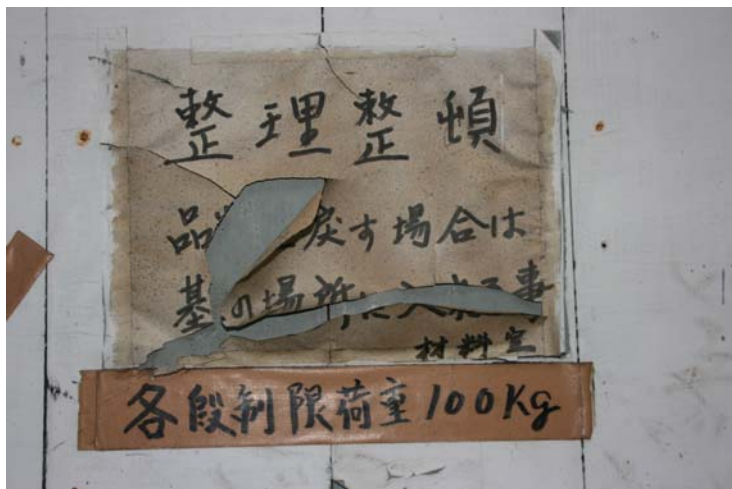 整理整頓
品 戻す場合は
基の場所に入れる事
材料室
各段制限荷重100Kg